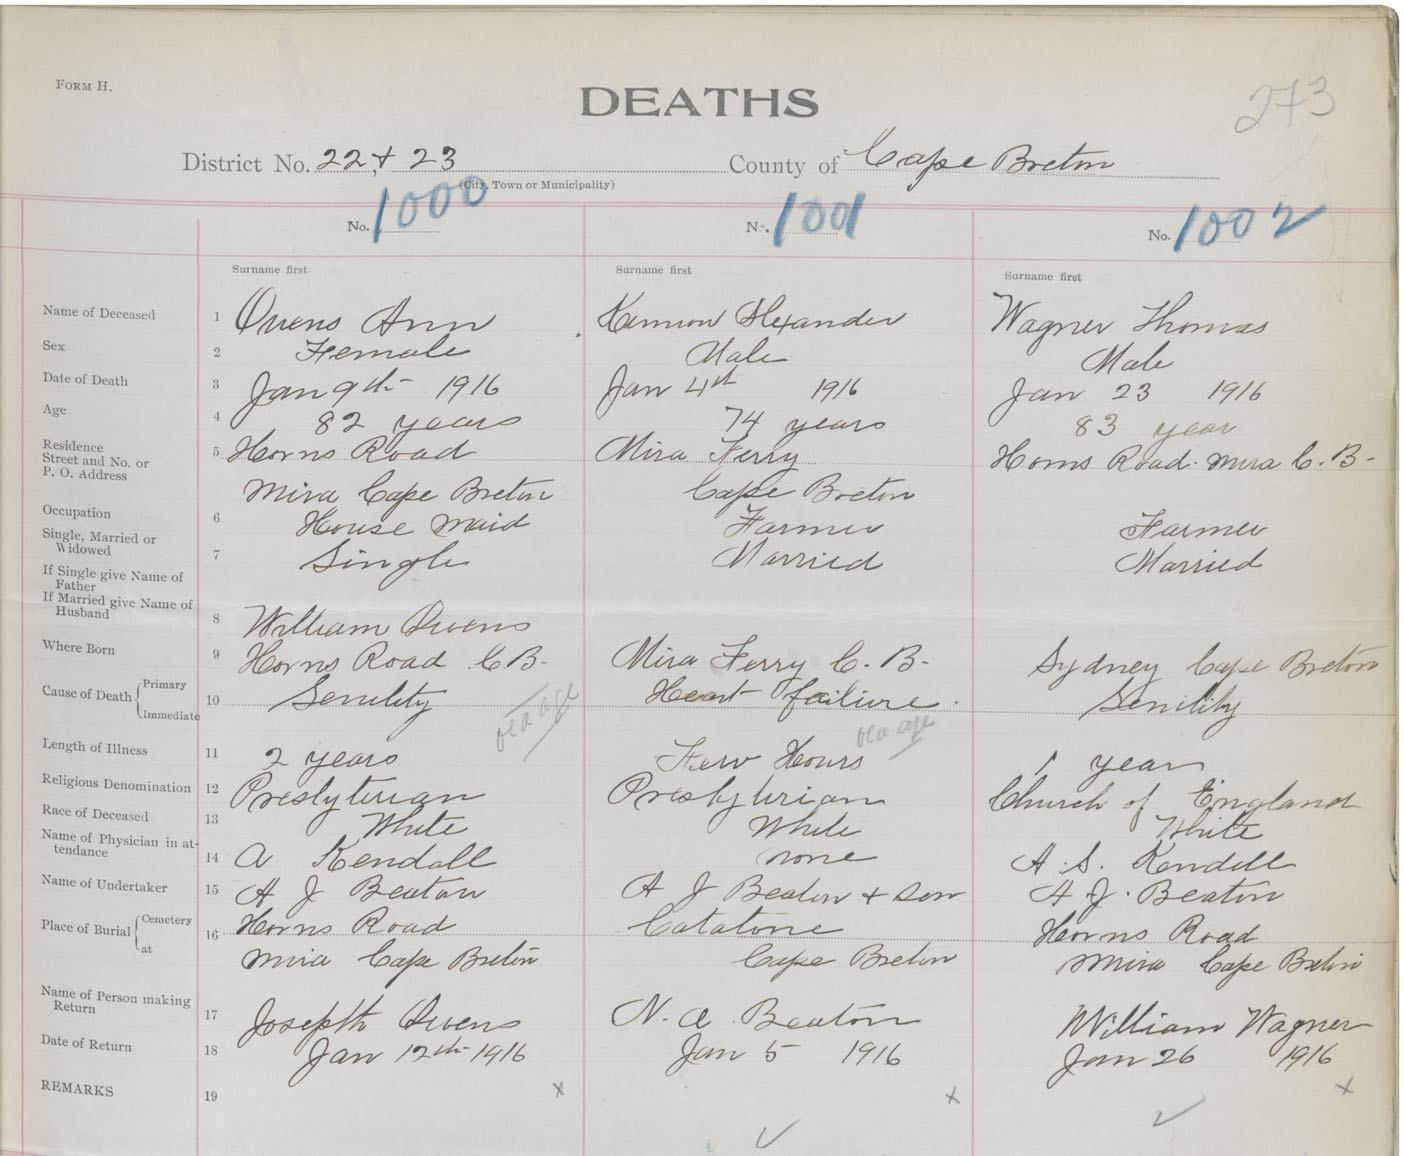 FORM H.
DEATHS
273
District No. 22 + 23 County of Cape Breton
(City, Town or Municipality)
No. 1000 No. 1001 No. 1002
Surname first Surname first Surname first
Name of Deceased 1 Owens Ann Alexander Wagner Thomas
Sex 2 Female Male Male
Date of Death 3 Jan 9th 1916 Jan 4th 1916 Jan 23 1916
Age 4 82 years 74 years 83 year
Residence
Street and No. or 5 Horns Road Mira Ferry Horns Road. Mira C. B-
P. O. Address Mira Cape Breton Cape Breton
Occupation 6 House maid Farmer Farmer
Single, Married or
Widowed 7 Single Married Married
If Single give Name of
Father
If Married give Name of
Husband 8 William Owens
Where Born 9 Horns Road C.B- Mira Ferry C. B- Sydney Cape Breton
Cause of Death { Primary
Immediate 10 Senility Heart failure. Senility
old age old age
Length of Illness 11 2 years Few Hours 1 year
Religious Denomination 12 Presbyterian Presbyterian Church of England
Race of Deceased 13 White White White
Name of Physician in at-
tendance 14 A Kendall none A. S. Kendell
Name of Undertaker 15 A J Beaton A J Beaton + Son A J. Beaton
Place of Burial { Cemetery
at 16 Horns Road Catatone Horns Road
Mira Cape Breton Cape Breton Mira Cape Breton
Name of Person making
Return 17 Joseph Owens N. A. Beaton William Wagner
Date of Return 18 Jan 12th 1916 Jan 5 1916 Jan 26 1916
REMARKS 19 x x x